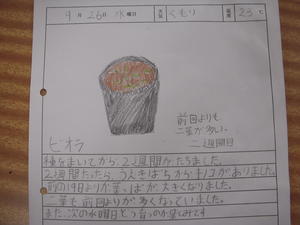 9月26日 水曜日 天気 くもり 気温 23℃
前回よりも
二葉が多い。
二週間目
ビオラ
種をまいてから、2週間がたちました。
2週間たったら、うえきばちからキノコがありました。
前の19日よりか葉、ぱが、大きくなりました。
二葉も前回よりか多くなっていました。
また、次の水曜日どうなるのか楽しみです